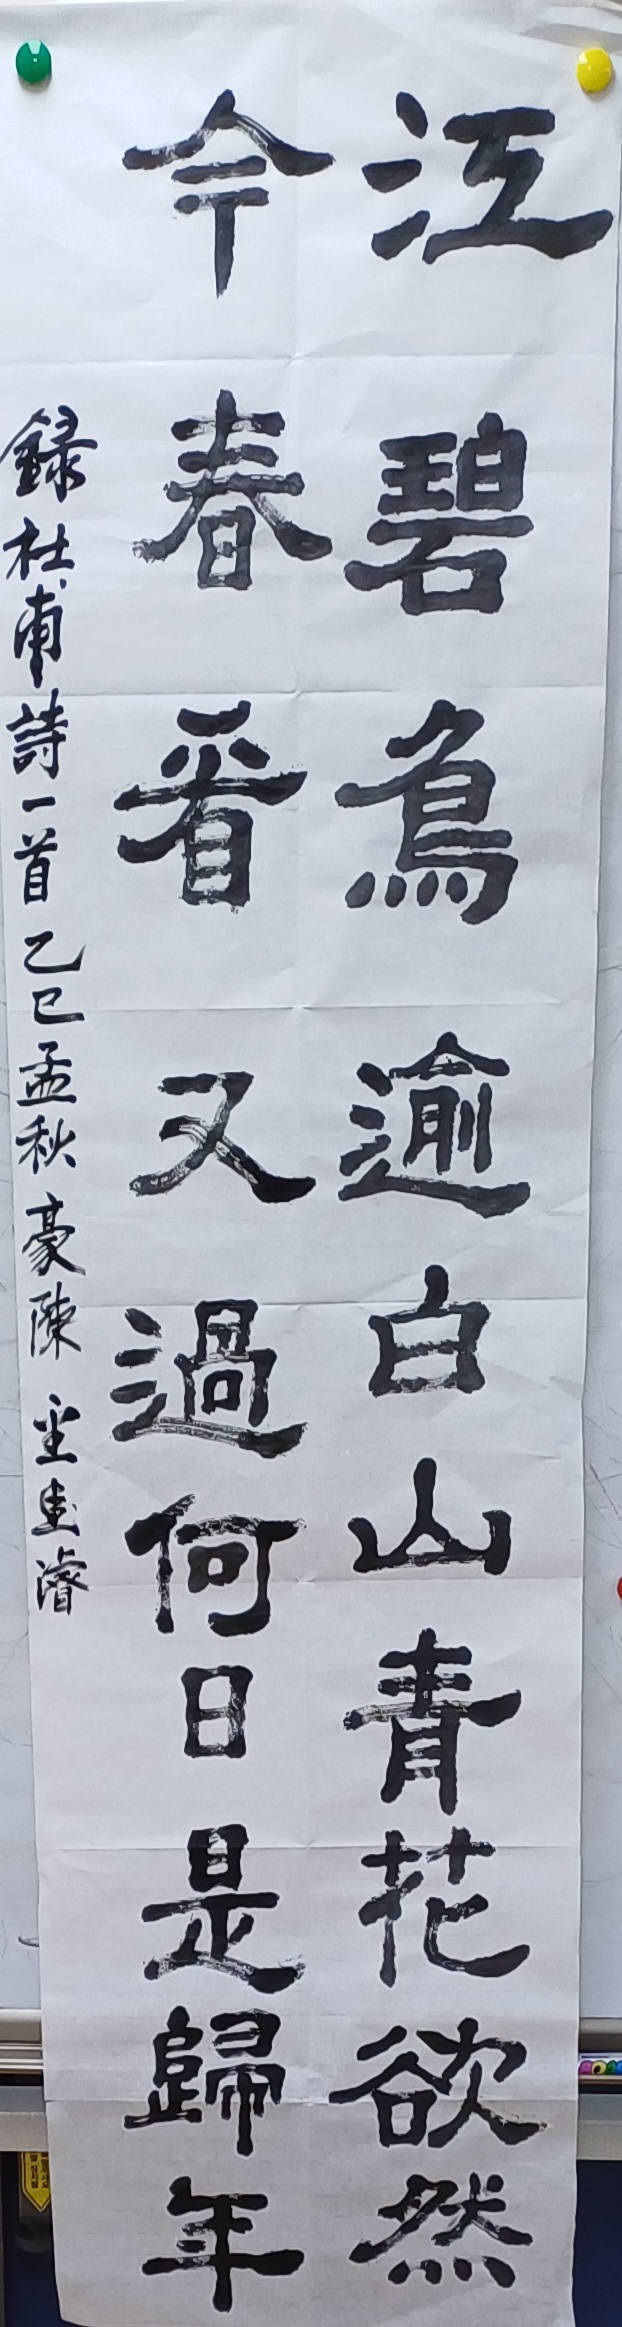 江碧鳥逾白山青花欲然
今春看又過何日是歸年
錄杜甫詩一首乙巳孟秋豪陳